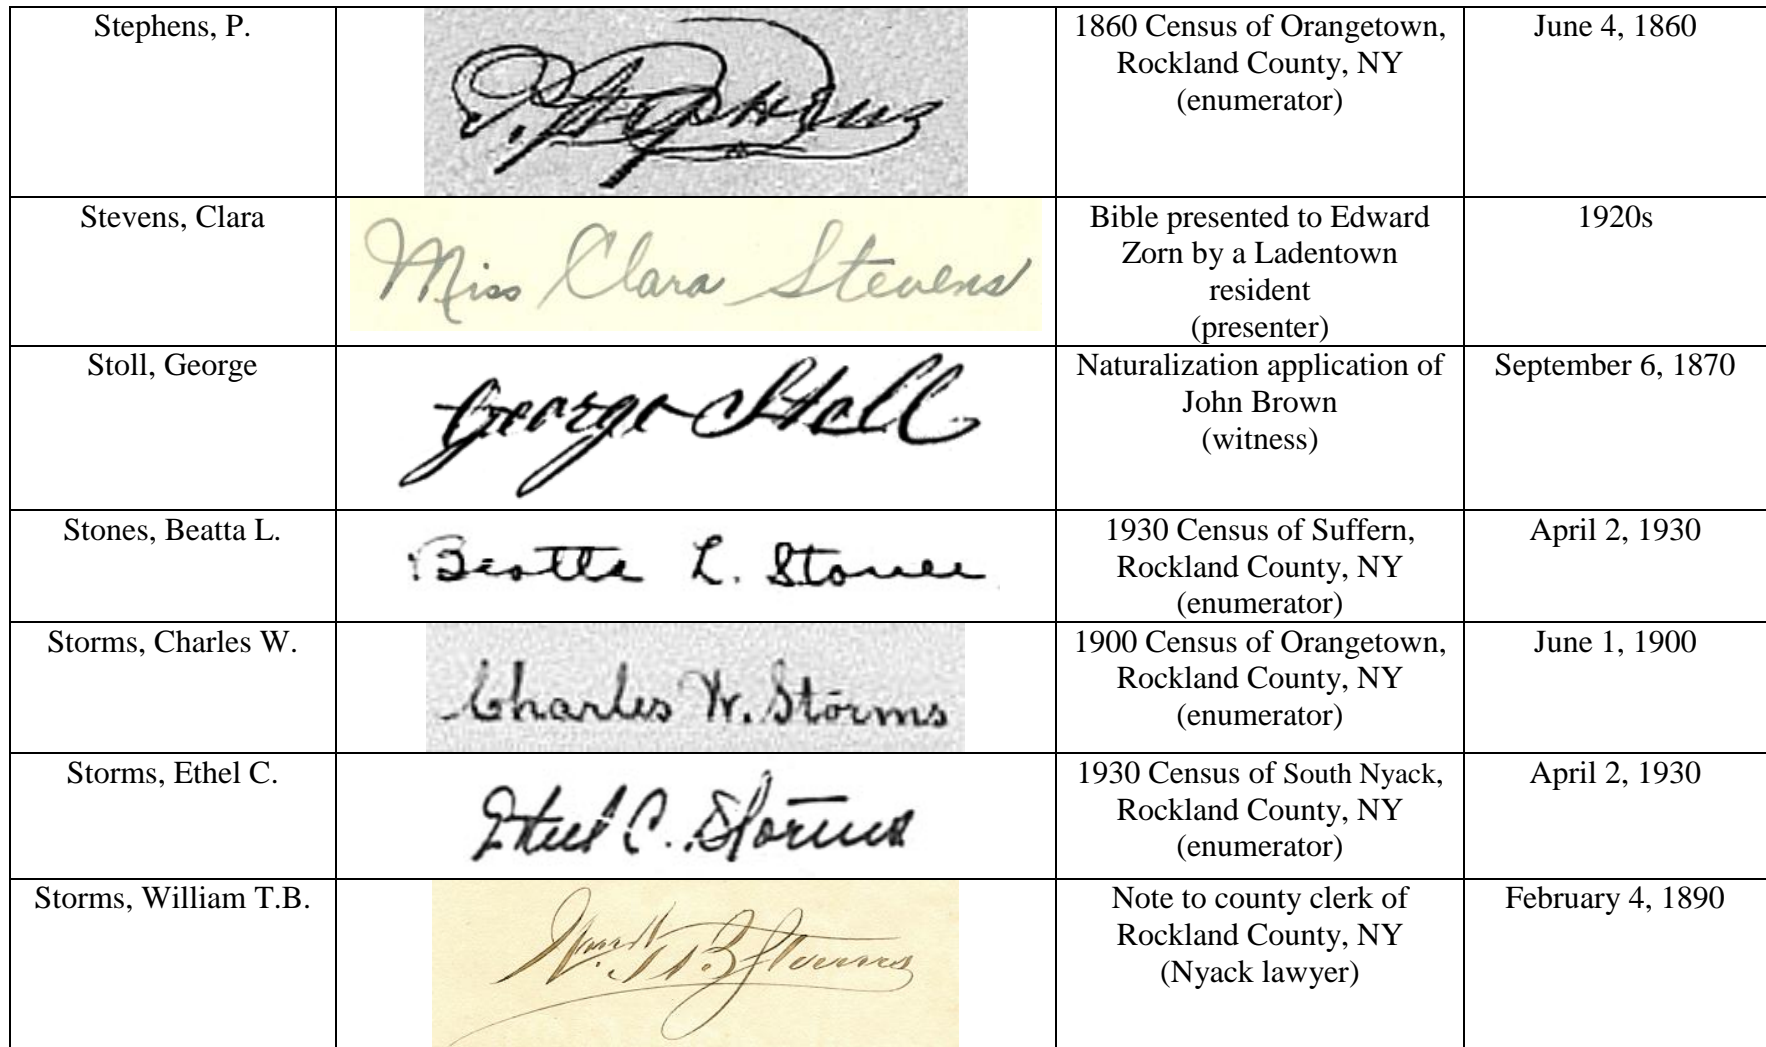 Stephens, P.
P. Stephens
1860 Census of Orangetown,
Rockland County, NY
(enumerator)
June 4, 1860
Stevens, Clara
Miss Clara Stevens
Bible presented to Edward
Zorn by a Ladentown
resident
(presenter)
1920s
Stoll, George
George Stoll
Naturalization application of
John Brown
(witness)
September 6, 1870
Stones, Beatta L.
Beatta L. Stones
1930 Census of Suffern,
Rockland County, NY
(enumerator)
April 2, 1930
Storms, Charles W.
Charles W. Storms
1900 Census of Orangetown,
Rockland County, NY
(enumerator)
June 1, 1900
Storms, Ethel C.
Ethel C. Storms
1930 Census of South Nyack,
Rockland County, NY
(enumerator)
April 2, 1930
Storms, William T.B.
Wm. T. B. Storms
Note to county clerk of
Rockland County, NY
(Nyack lawyer)
February 4, 1890